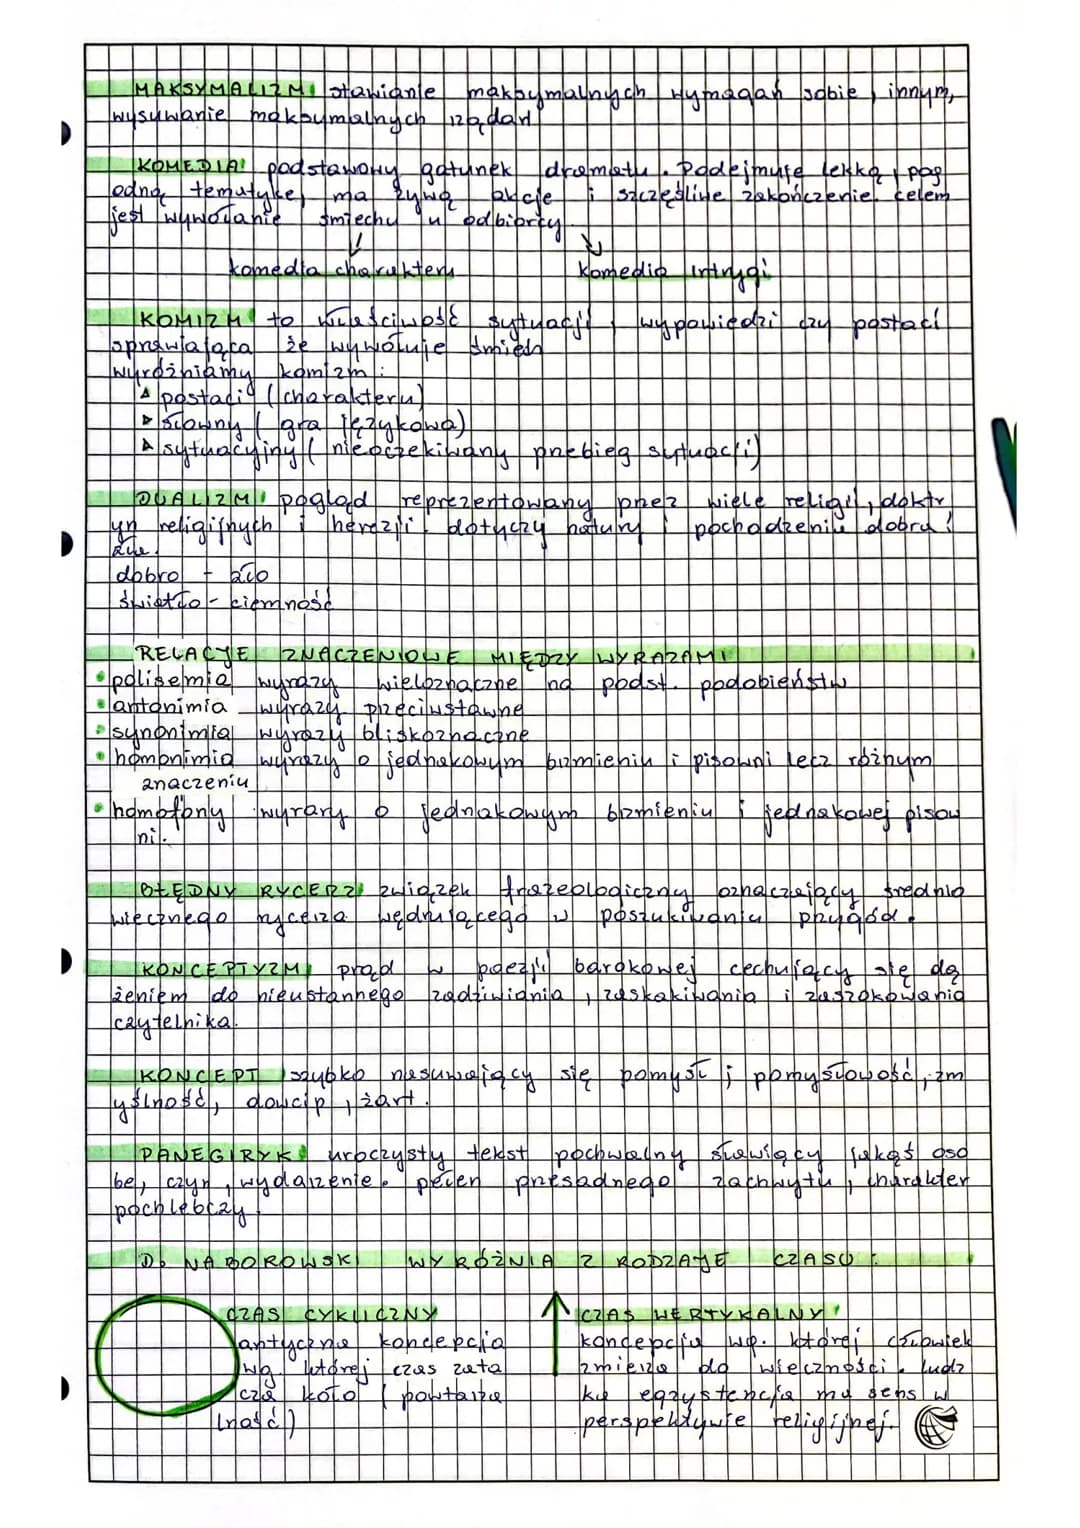 MAKSYMALIZM! stawianie maksymalnych wymagań sobie, innym,
wysuwanie maksymalnych rządań
KOMEDIA! podstawowy gatunek dramatu. Podejmuje lekką, pog
odną tematykę, ma żywą akcję i szczęśliwe zakończenie. celem
jest wywołanie śmiechu u odbiorcy
komedia charakteru komedia intrygi
KOMIZM! to właściwość sytuacji, wypowiedzi czy postaci
sprawiająca że wywołuje śmiech
wyróżniamy komizm:
postaci (charakteru)
słowny (gra językowa)
sytuacyjny (nieoczekiwany przebieg sytuacji)
DUALIZM! pogląd reprezentowany przez wiele religii, doktr
yn religijnych i herezji. dotyczy natury i pochodzenie dobra i
zła.
dobro - zło
światło - ciemność
RELACJE ZNACZENIOWE MIĘDZY WYRAZAMI
• polisemia wyrazy wieloznaczne na podst. podobieństw
• antonimia wyrazy przeciwstawne
• synonimia wyrazy bliskoznaczne
• homonimia wyrazy o jednakowym bzmieniu i pisowni lecz różnym
znaczeniu
• homofony wyrazy o jednakowym bzmieniu i jednakowej pisow
ni.
BŁĘDNY RYCERZ! związek frazeologiczny oznaczający średnio
wiecznego rycerza wędrującego w poszukiwaniu przygód.
KONCEPTYZM! prąd w poezji barokowej cechujący się dą
żeniem do nieustannego zadziwiania, zaskakiwania i zaszokowania
czytelnika.
KONCEPT! szybko nasuwający się pomysł; pomysłowość, zm
yślność, dowcip, żart.
PANEGIRYK! uroczysty tekst pochwalny sławiący jakąś oso
bę, czyn, wydarzenie. pełen przesadnego zachwytu, charakter
pochlebczy.
D. NABOROWSKI WYRÓŻNIA 2 RODZAJE CZASU:
CZAS CYKLICZNY
antyczna koncepcja
wg. której czas zata
cza koło (powtarza
lność)
CZAS WERTYKALNY!
koncepcja wg. której człowiek
zmierza do wieczności. ludz
ka egzystencja ma sens w
perspektywie religijnej.